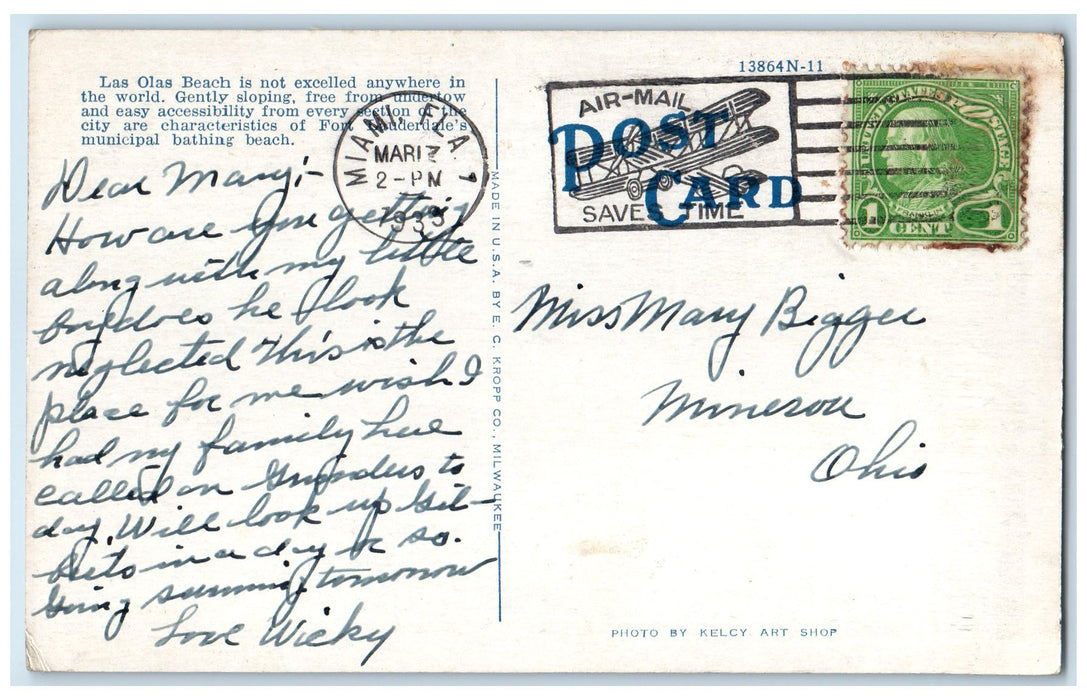 Las Olas Beach is not excelled anywhere in
the world. Gently sloping, free from undertow
and easy accessibility from every section of the
city are characteristics of Fort Lauderdale's
municipal bathing beach.
Dear Mary;-
How are you getting
along with my little
boy does he look
neglected This is the
place for me wish I
had my family here
called on Grinders to
day. Will look up Gil-
berts in a day or so.
Going swimming tomorrow
Love Wicky
MADE IN U.S.A. BY E. C. KROPP CO., MILWAUKEE
MIAMI, FLA. 1
MAR 17
2-PM
1933
13864N-11
AIR-MAIL
SAVES TIME
POST
CARD
UNITED STATES POSTAGE
FRANKLIN
1 CENT 1
Miss Mary Bigger
Minerva
Ohio
PHOTO BY KELCY ART SHOP